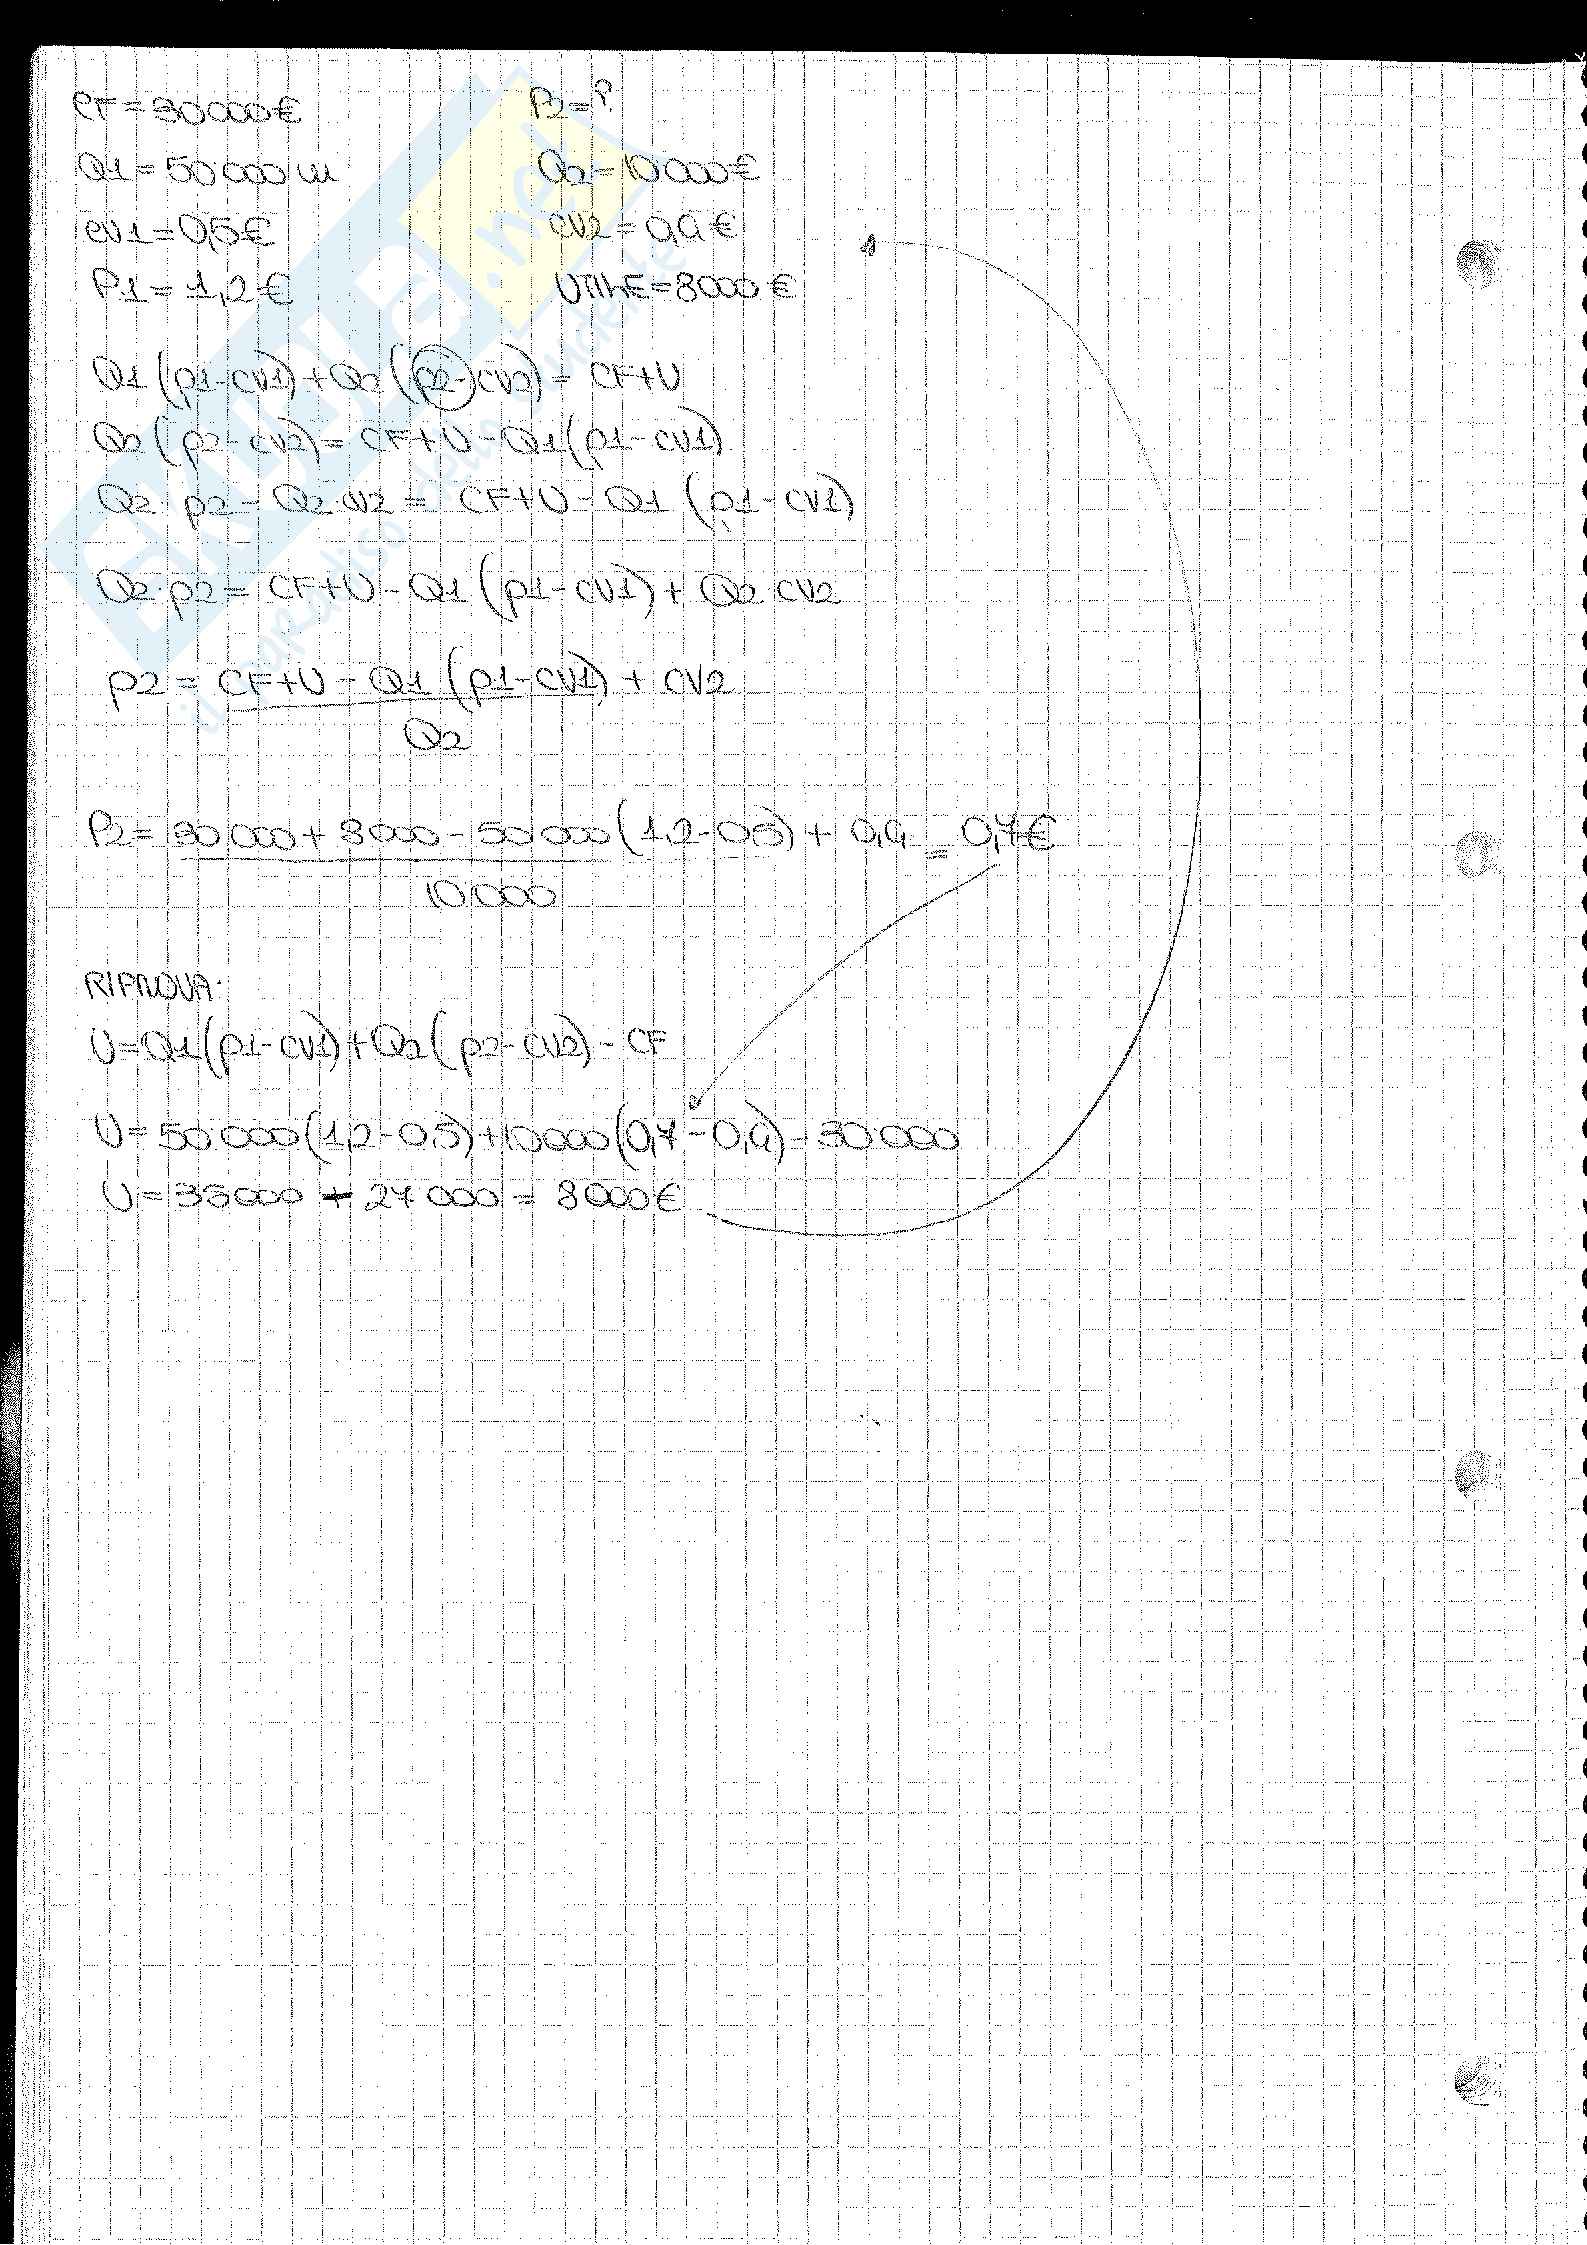 CF = 30 000 €
P2 = ?
Q1 = 50 000 u
Q2 = 10 000 €
CV1 = 0,5 €
CV2 = 0,4 €
P1 = 1,2 €
UTILE = 8000 €
Q1 (p1 - CV1) + Q2 (p2 - CV2) = CF + U
Q2 (p2 - CV2) = CF + U - Q1 (p1 - CV1)
Q2 · p2 - Q2 · CV2 = CF + U - Q1 (p1 - CV1)
Q2 · p2 = CF + U - Q1 (p1 - CV1) + Q2 · CV2
p2 = CF + U - Q1 (p1 - CV1) + CV2
Q2
P2 = 30 000 + 8 000 - 50 000 (1,2 - 0,5) + 0,4 = 0,7 €
10 000
RIPROVA:
U = Q1 (p1 - CV1) + Q2 (p2 - CV2) - CF
U = 50 000 (1,2 - 0,5) + 10 000 (0,7 - 0,4) - 30 000
U = 35 000 - 27 000 = 8 000 €